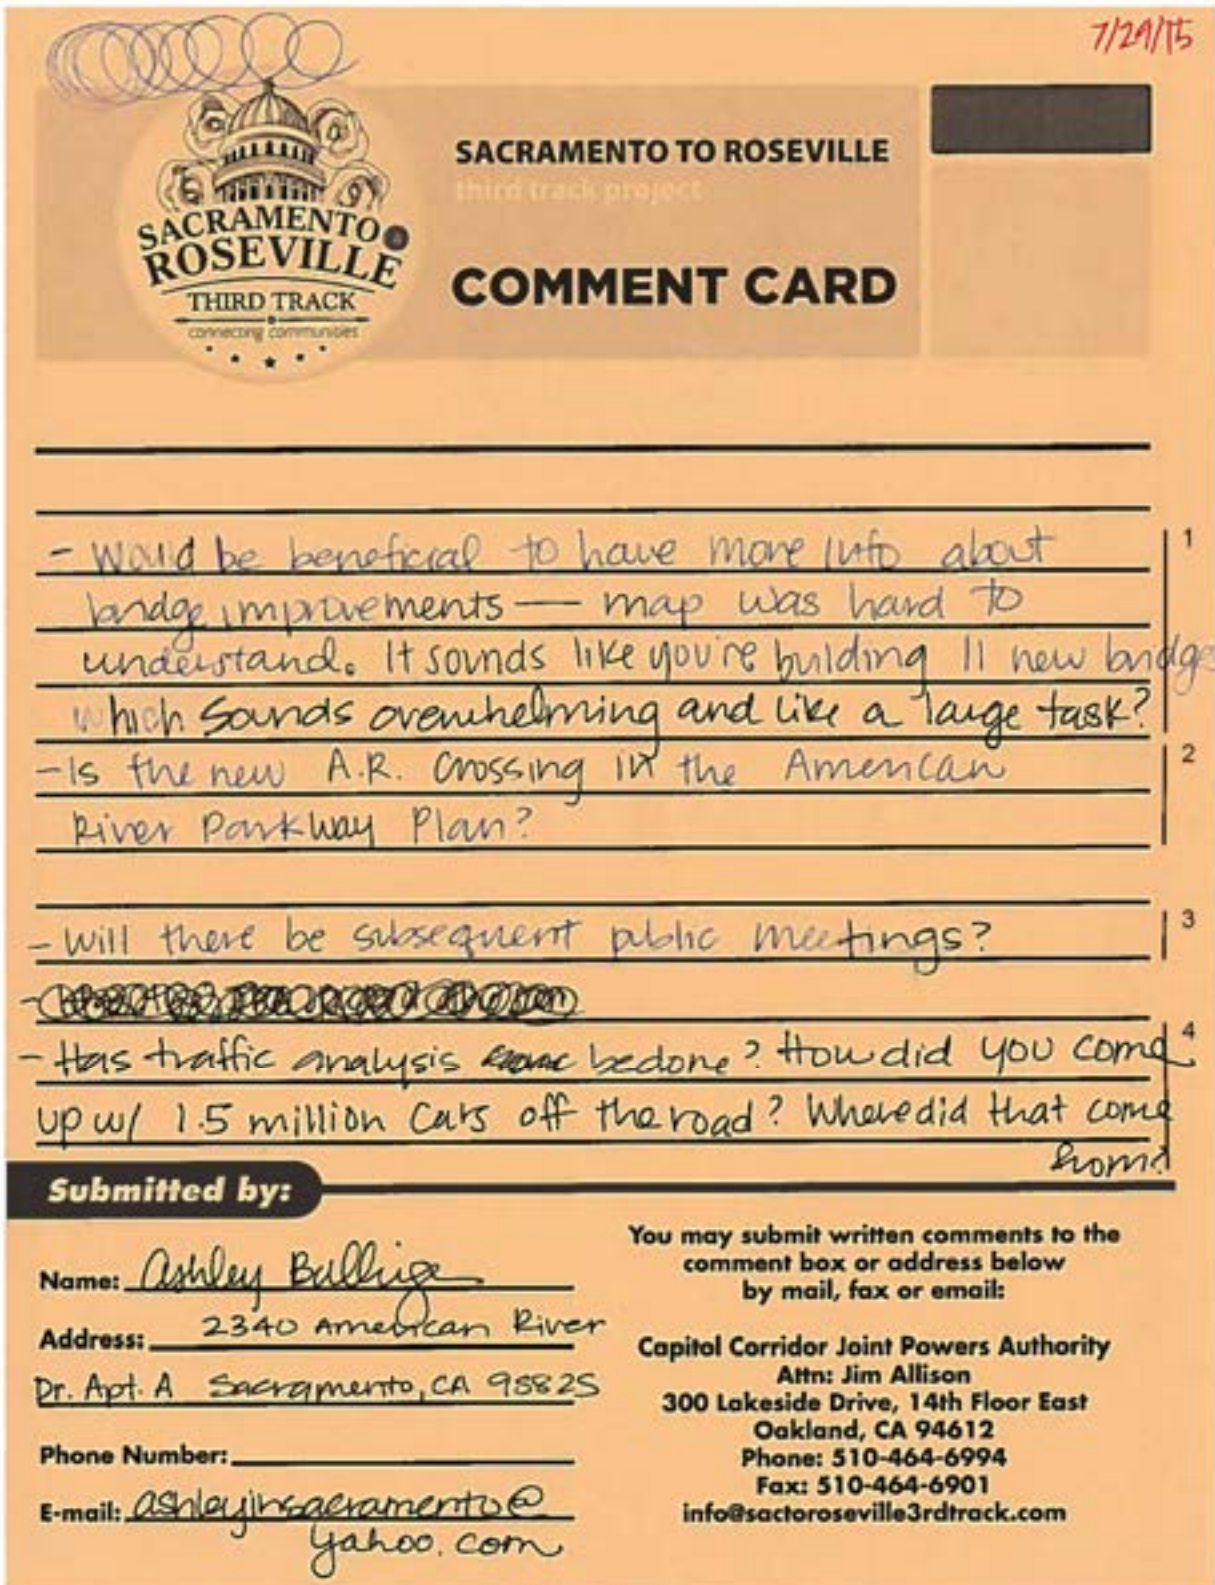 7/29/15
SACRAMENTO TO ROSEVILLE
third track project
COMMENT CARD
SACRAMENTO
ROSEVILLE
THIRD TRACK
connecting communities
- Would be beneficial to have more info about
bridge improvements — map was hard to
understand. It sounds like you're building 11 new bridges
which sounds overwhelming and like a large task?
1
- Is the new A.R. Crossing in the American
River Parkway Plan?
2
- Will there be subsequent public meetings?
3
-
- Has traffic analysis be done? How did you come
up w/ 1.5 million cars off the road? Where did that come
from?
4
Submitted by:
Name: Ashley
Address: 2340 American River
Dr. Apt. A Sacramento, CA 95825
Phone Number:
E-mail: ashleyinsacramento@
yahoo.com
You may submit written comments to the
comment box or address below
by mail, fax or email:
Capitol Corridor Joint Powers Authority
Attn: Jim Allison
300 Lakeside Drive, 14th Floor East
Oakland, CA 94612
Phone: 510-464-6994
Fax: 510-464-6901
info@sactoroseville3rdtrack.com